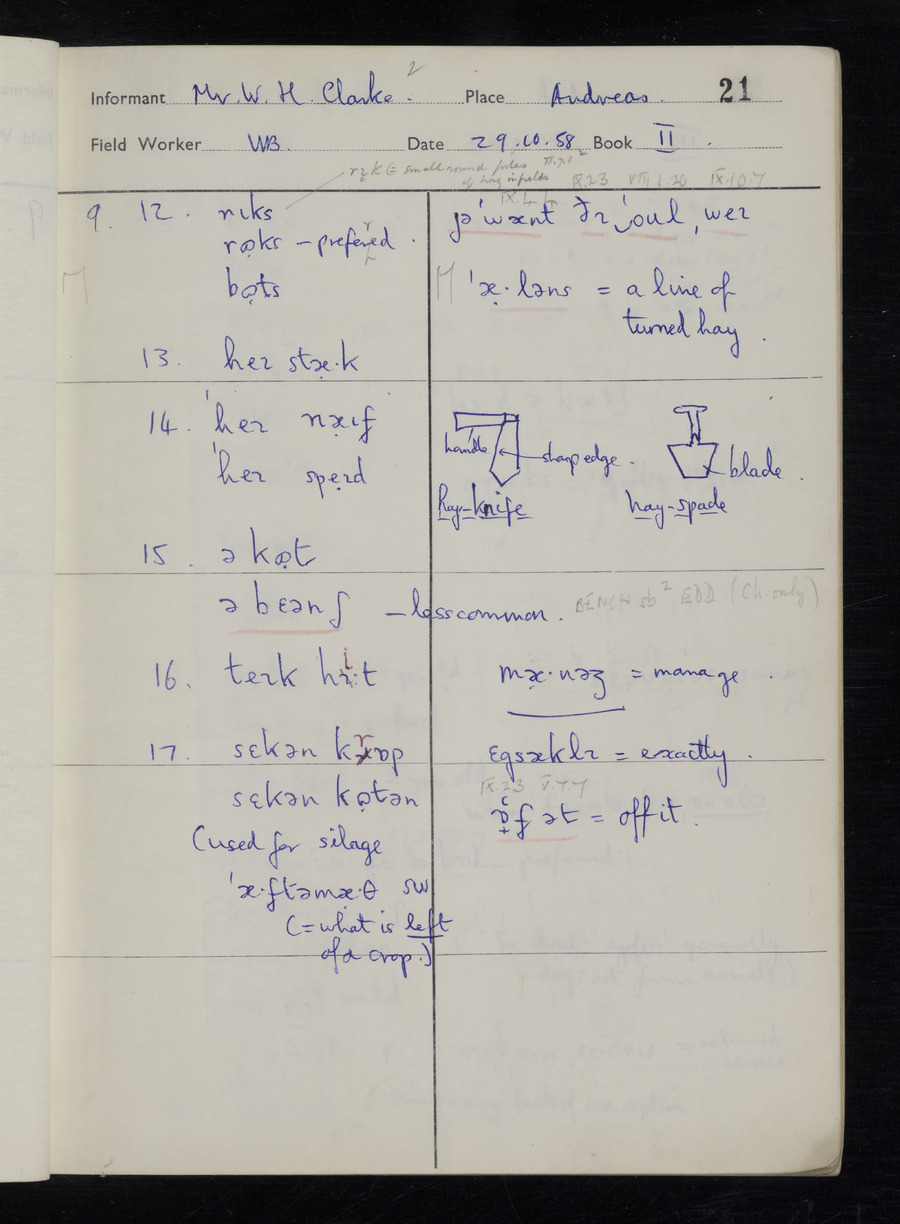 Informant Mr. W. H. Clarke. 2 Place Andreas. 21
Field Worker WB. Date 29.10.58 Book II.
= small round piles
of hay in fields IX.23 VIII.1.20 IX.10.7
9. 12. rɪks
rɒ̣ks – preferred.
M bɒ̣ts
13. heɪ stæ̣·k
14. ˈheɪ næ̣ɪf
ˈheɪ speɪd
15. ə kɒ̣t
ə bɛənʃ – less common. BENCH sb² EDD (Ch. only)
16. teɪk
17. sɛkən krɒp
sɛkən kɒ̣tən
(used for silage
ˈæ·ftəmæ·θ SW
(= what is left
of a crop.)
jə ˈwænt ðɪ ˈoul ˌweɪ
M ˈæ̣·ləns = a line of
turned hay.
handle sharp edge. blade.
hay-knife hay-spade
mæ̣·nəʒ = manage.
ɛgsæklɪ = exactly.
IX.2.3 V.7.7
ət = off it.